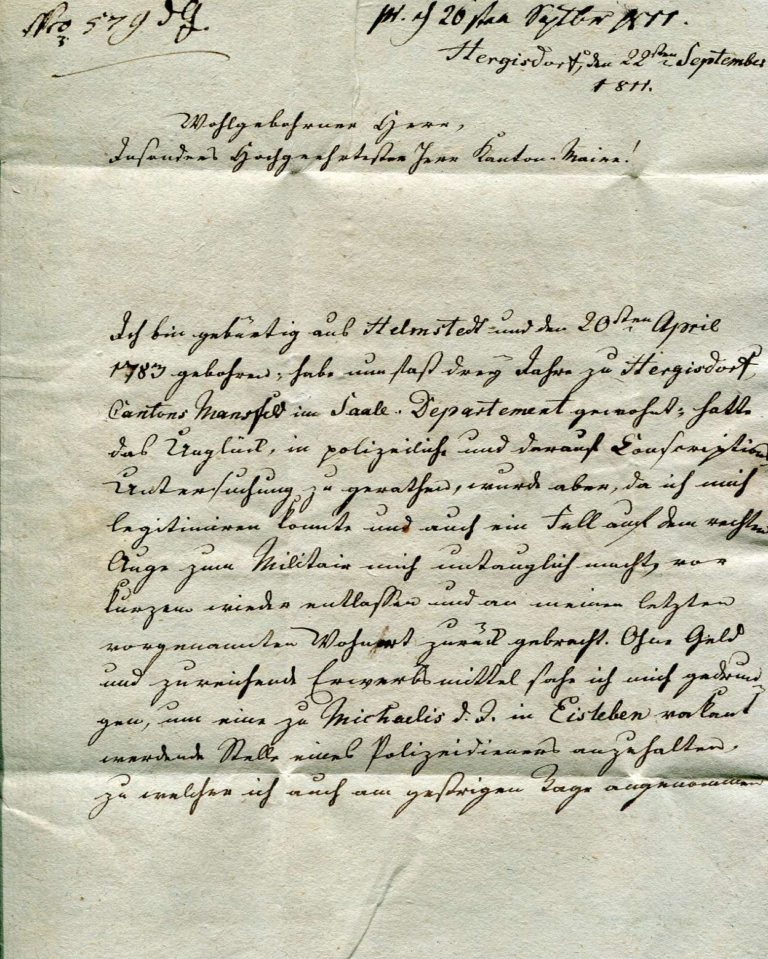 No 579
pr. d 26sten Septbr 1811.
Hergisdorf, den 22sten September
1811.
Wohlgebohrner Herr,
Insonders Hochgeehrtester Herr Kanton-Maire!
Ich bin gebürtig aus Helmstedt und den 20sten April
1783 gebohren, habe nun fast drey Jahre zu Hergisdorf,
Cantons Mansfeld im Saale-Departement gewohnt, hatte
das Unglück, in polizeiliche und darauf Conscriptions
Untersuchung zu gerathen, wurde aber, da ich mich
legitimiren konnte und auch ein Fell auf dem rechten
Auge zum Militair mich untauglich macht, vor
kurzem wieder entlassen und an meinen letzten
vorgenannten Wohnort zurück gebracht. Ohne Geld
und zureichende Erwerbsmittel sahe ich mich gedrun-
gen, um eine zu Michaelis d. J. in Eisleben vakant
werdende Stelle eines Polizeidieners anzuhalten,
zu welcher ich auch am gestrigen Tage angenommen